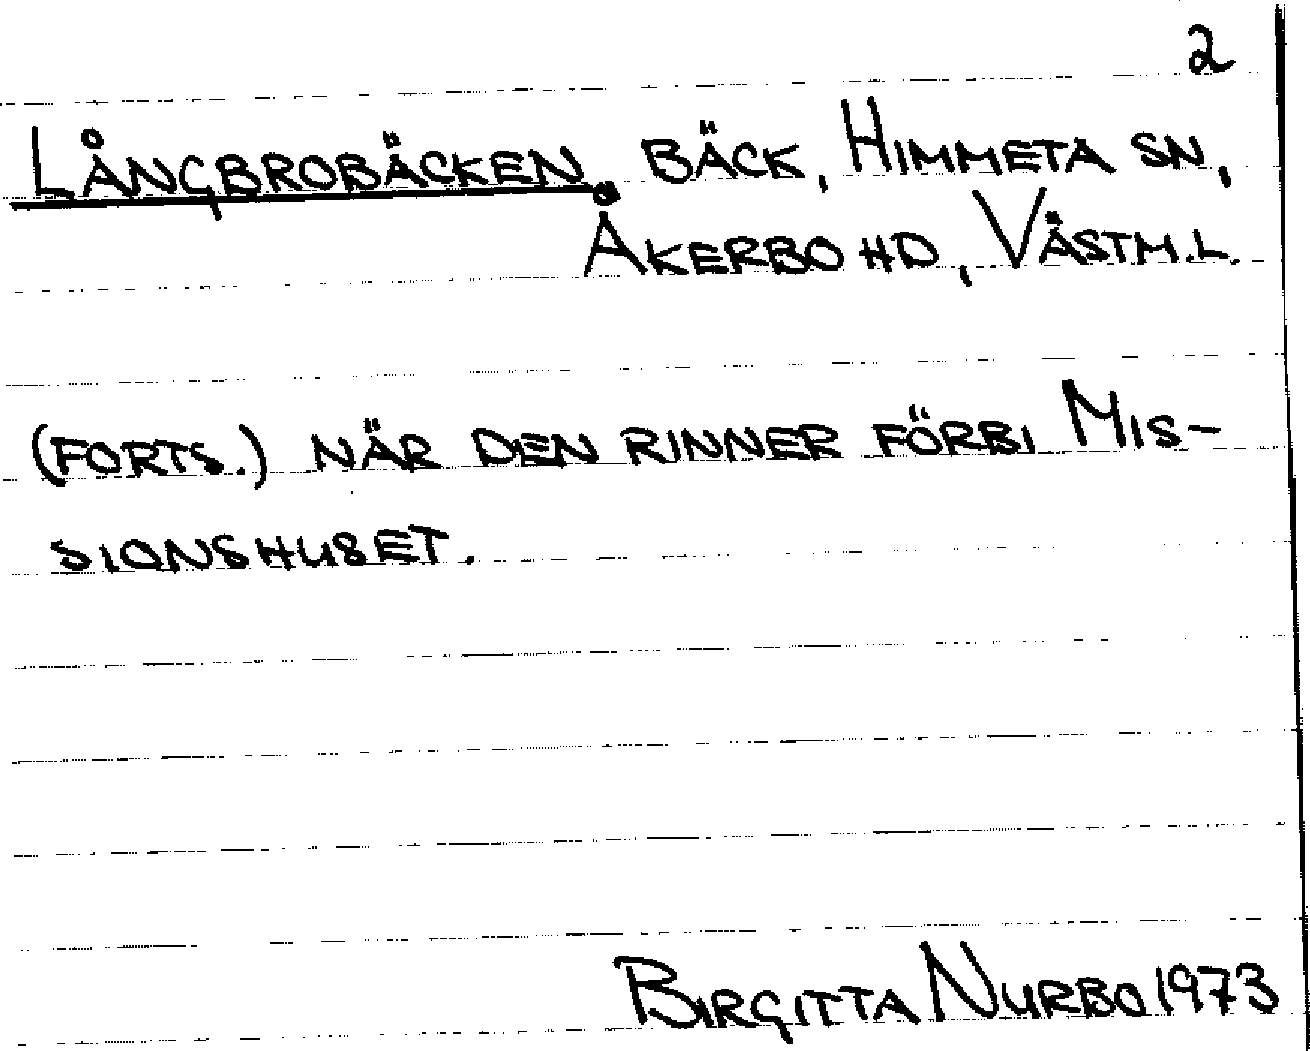 2
LÅNGBROBÄCKEN, BÄCK, HIMMETA SN,
ÅKERBO HD, VÄSTM.L.
(FORTS.) NÄR DEN RINNER FÖRBI MIS-
SIONSHUSET.
BIRGITTA NURBO 1973